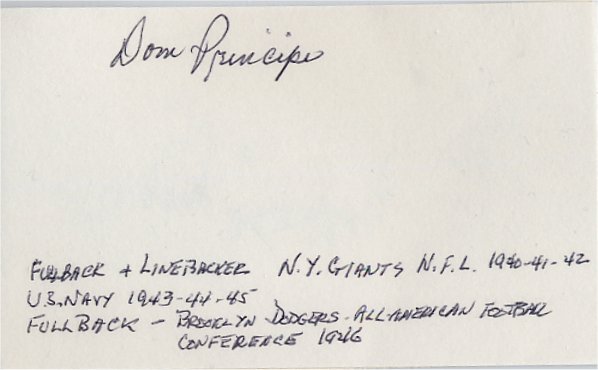 Dom Principe
FULLBACK + LINEBACKER N.Y. GIANTS N.F.L. 1940-41-42
U.S. NAVY 1943-44-45
FULLBACK - BROOKLYN DODGERS - ALL-AMERICAN FOOTBALL
CONFERENCE 1946